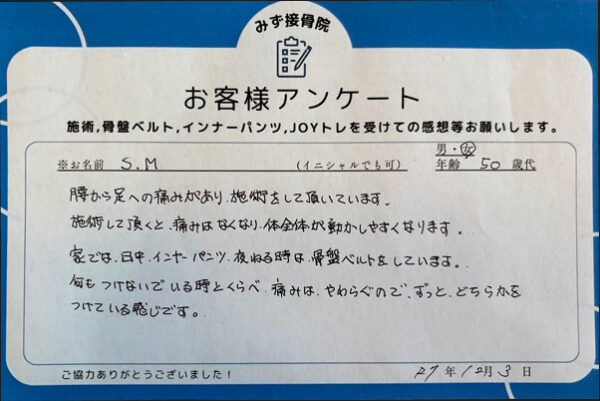 みず接骨院
お客様アンケート
施術,骨盤ベルト,インナーパンツ,JOYトレを受けての感想等お願いします。
男・女
※お名前 S.M (イニシャルでも可) 年齢 50 歳代
腰から足への痛みがあり、施術をして頂いています。
施術して頂くと、痛みはなくなり、体全体が動かしやすくなります。
家では、日中、インナーパンツ、夜ねる時は、骨盤ベルトをしています。
何もつけないでいる時とくらべ、痛みは、やわらぐので、ずっと、どちらかを
つけている感じです。
ご協力ありがとうございました！ 27年12月3日